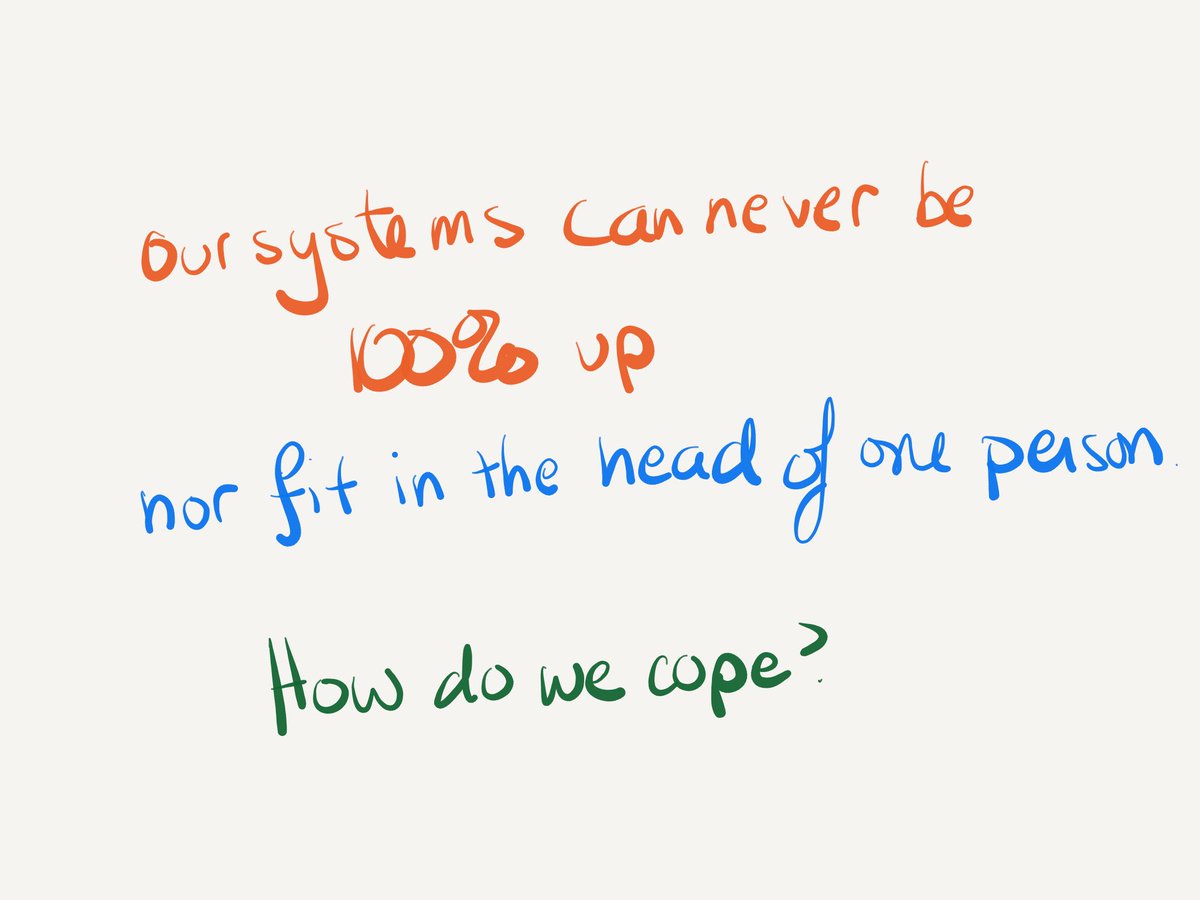 our systems can never be
100% up
nor fit in the head of one person.
How do we cope?